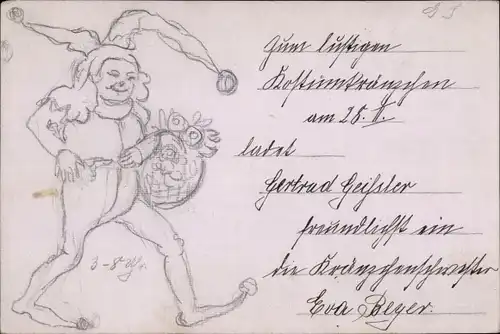 Zum lustigen
Kostümkränzchen
am 28. II.
ladet
Gertrud Geißler
freundlichst ein
die Kränzchenschwester
Eva Beyer.
3-8 Uhr.